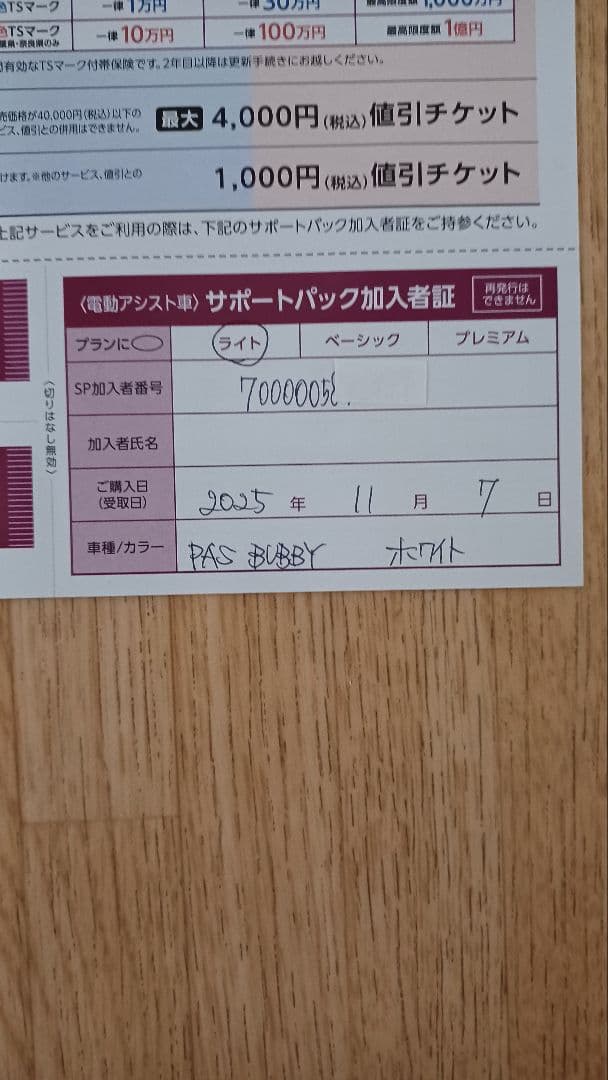 TSマーク 一律1万円 一律30万円
TSマーク 一律10万円 一律100万円 最高限度額1億円
葉県・奈良県のみ
有効なTSマーク付帯保険です。2年目以降は更新手続きにお越しください。
売価格が40,000円(税込)以下の
ビス、値引との併用はできません。
最大 4,000円(税込)値引チケット
けます。※他のサービス、値引との
1,000円(税込)値引チケット
上記サービスをご利用の際は、下記のサポートパック加入者証をご持参ください。
〈電動アシスト車〉サポートパック加入者証 再発行は
できません
プランに ライト ベーシック プレミアム
SP加入者番号 7000005
〈切りはなし無効〉
加入者氏名
ご購入日
(受取日) 2025 年 11 月 7 日
車種/カラー PAS BUBBY ホワイト